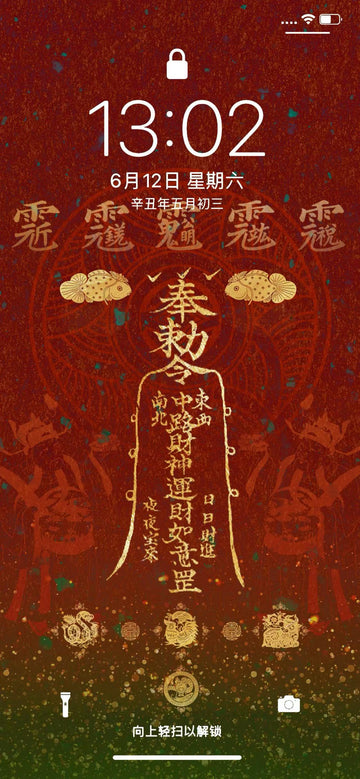 13:02
6月12日 星期六
辛丑年五月初三
奉
勅
令
東西
南北
中路財神運財如意罡
日日財進
夜夜寶來
向上轻扫以解锁